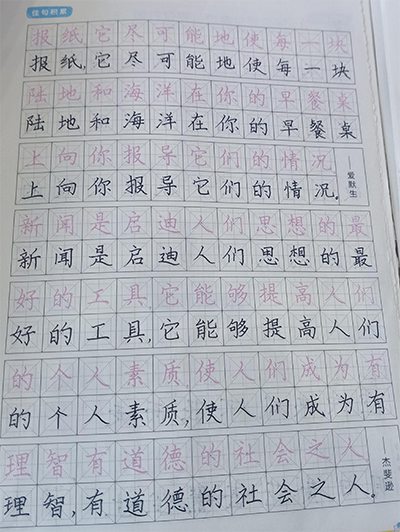 佳句积累
报纸,它尽可能地使每一块
报纸,它尽可能地使每一块
陆地和海洋在你的早餐桌
陆地和海洋在你的早餐桌
上向你报导它们的情况。
上向你报导它们的情况。
——爱默生
新闻是启迪人们思想的最
新闻是启迪人们思想的最
好的工具,它能够提高人们
好的工具,它能够提高人们
的个人素质,使人们成为有
的个人素质,使人们成为有
理智有道德的社会之人
理智,有道德的社会之人。
杰斐逊